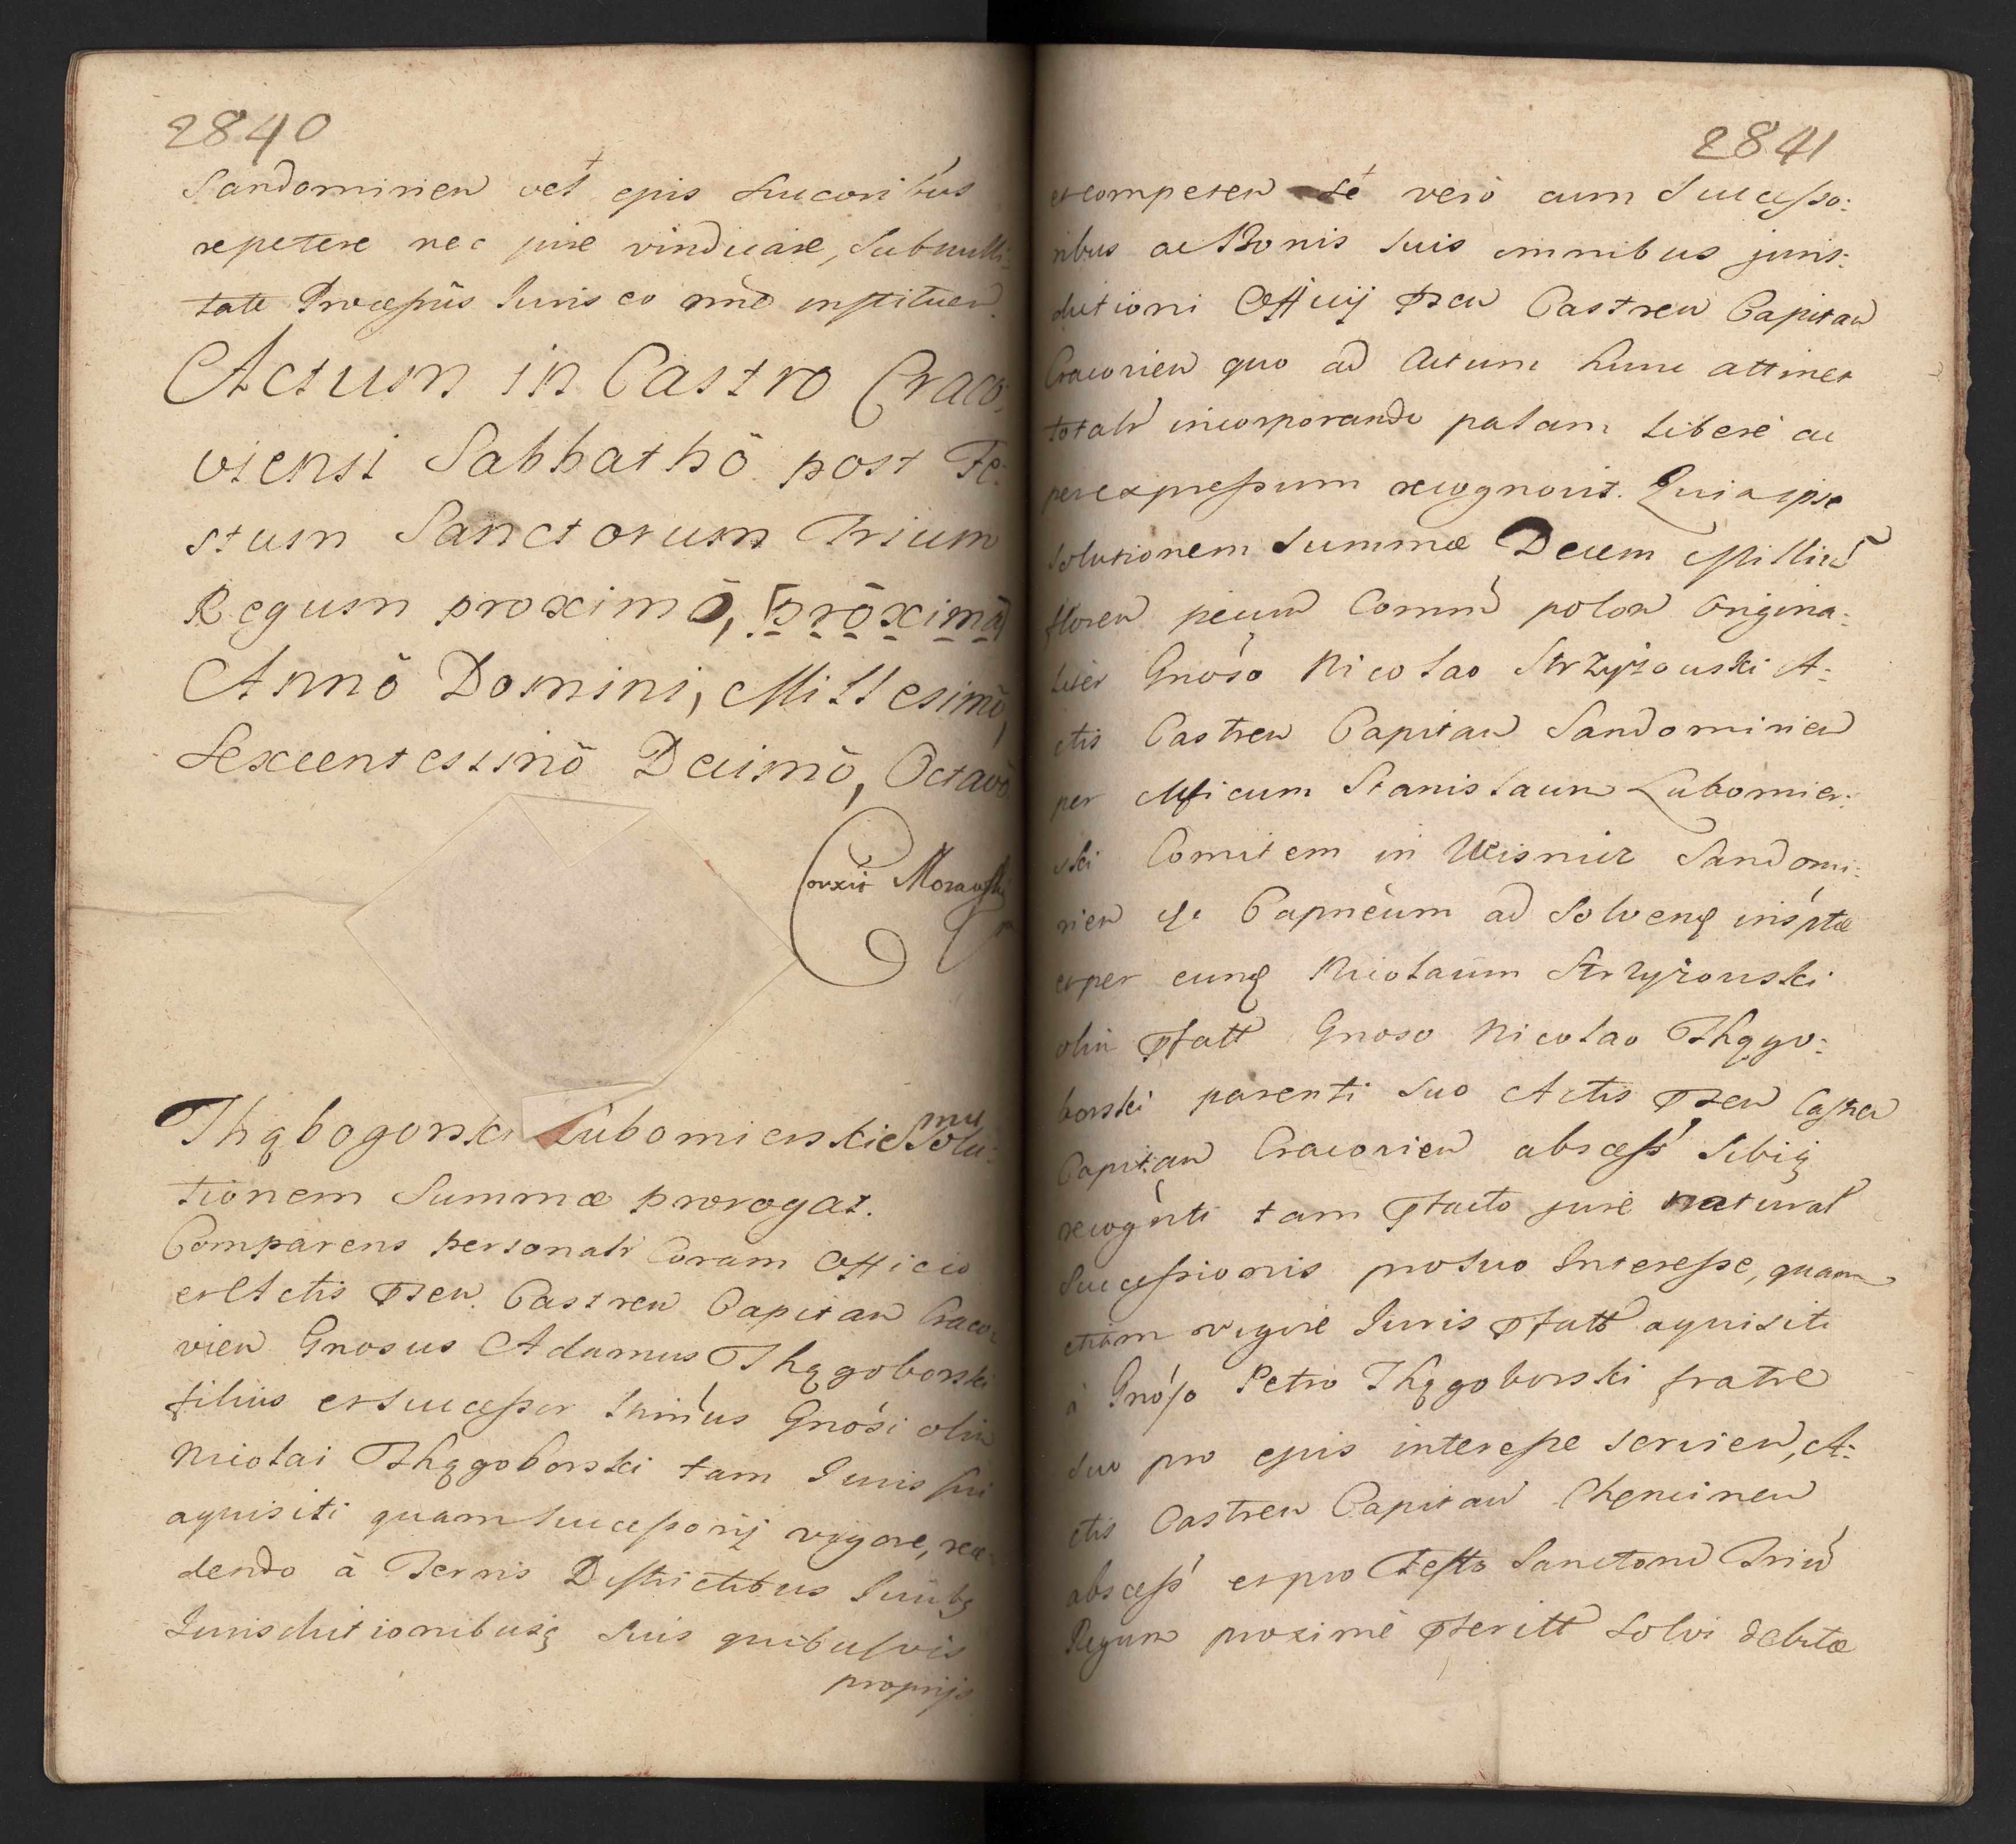 2840
Sandomirien vel ejus Succoribus
repetere nec jure vindicare, Subnulli:
tate Processûs Iuris eo nñe instituen.
Actum in Castro Craco:
viensi Sabbathô post Fe:
stum Sanctorum Trium
Regum proximô, [prôximâ]
Annô Domini, Millesimô,
Sexcentesimô Decimô, Octavô
Corxit Morawski
Thąbogorski Lubomierskie mu Solu:
tionem Summæ prorogat.
Comparens personalr Coram Officio
et Actis Pſen. Castren Capitan Craco:
vien Gnosus Adamus Thągoborski
filius et Successor Gnosi olim
Nicolai Thągoborski tam Iuris sui
aquisiti quam Successorij vigore, rece:
dendo â Terris Districtibus
Iurisdictionibusq suis quibusvis
proprijs
2841
et competen sé verò cum Successo:
ribus ac Bonis suis omnibus juris:
dictioni Officij Pſen Castren Capitan
Cracovien quo ad Actum hunc attinet
totalr incorporando palam liberè ac
per expressum recognovit. Quia ipse
Solutionem Summæ Decem Milliũ
floren pecun Commũ polon Origina:
liter Gnoso Nicolao Strzyżowski A:
ctis Castren Capitan Sandomirien
per Mficum Stanislaum Lubomier:
ski Comitem in Wisnicz Sandomi:
rien Capneum ad Solvenq insptæ
et per eunq Nicolaum Strzyżowski
olim Pſatt Gnoso Nicolao Thągo:
borski parenti suo Actis Pſen Castren
Capitan Cracovien abscess Sibiq
recognti tam Pſacto jure natural
Successionis pro suo Interesse, quam
etiam vigore Iuris Pſatt aquisiti
à Gnoso Petro Thągoborski fratre
suo pro ejus interesse servien, A:
ctis Castren Capitan Chęncinen
abscess et pro Festo Sanctorũ Triũ
Regum proximè Pſteritt Solvi debitæ